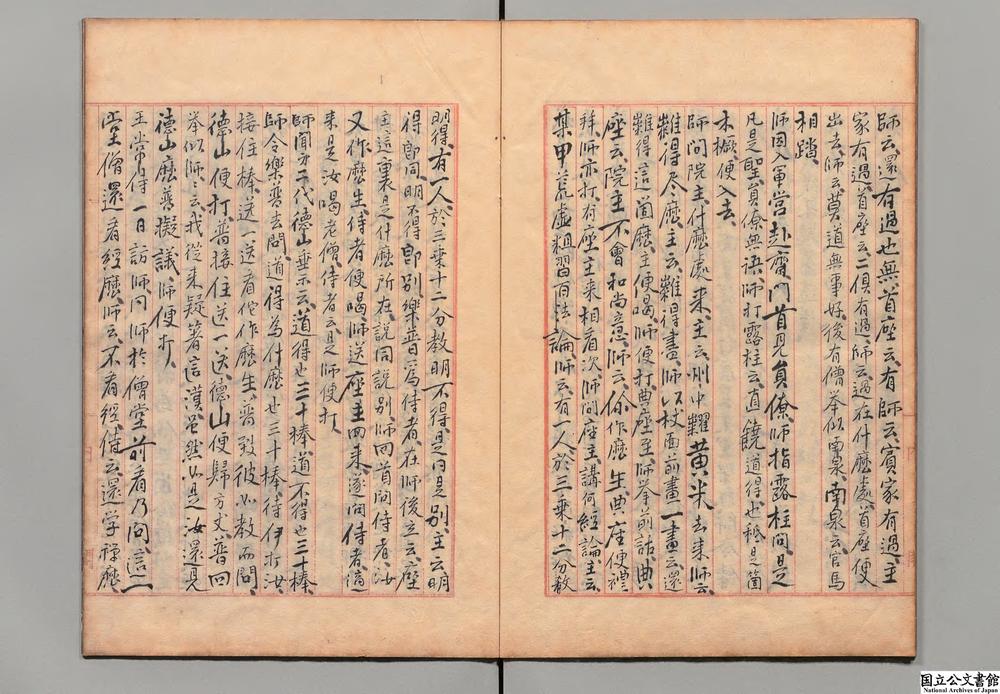 師云還有過也無首座云有師云賓家有過主
家有過首座云二俱有過師云過在什麼處首座便
出去師云莫道無事好後有僧举似南泉南泉云官馬
相踏
師因入軍営赴齋門首見員僚師指露柱問是
凡是聖員僚無語師打露柱云直饒道得也秪是箇
木橛便入去
師問院主什麼處来主云州中糶黄米去来師云
糶得尽麼主云糶得盡師以杖面前畫一畫云還
糶得這箇麼主便喝師便打典座至師举前話典
座云院主不會和尚意師云你作麼生典座便禮
拜師亦打有座主来相看次師問座主講何經論主云
某甲荒虚粗習百法論師云有一人於三乗十二分教
明得有一人於三乗十二分教明不得是同是別主云明
得即同明不得即別樂普為侍者在師後立云座
主這裏是什麼所在説同説别師回首問侍者汝
又作麼生侍者便喝師送座主回来遂問侍者適
来是汝喝老僧侍者云是師便打
師聞第二代德山垂示云道得也三十棒道不得也三十棒
師令樂普去問道得為什麼也三十棒待伊打汝
接住棒送一送看佗作麼生普到彼如教而問
德山便打普接住送一送德山便歸方丈普回
举似師師云我從来疑著這漢雖然如是汝還見
德山麼普擬議師便打
王常侍一日訪師同師於僧堂前看乃問這一
堂僧還看經麼師云不看經侍云還学禪麼
国立公文書館
National Archives of Japan